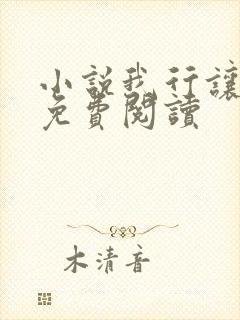 小說我行讓
免費閱讀
木清音